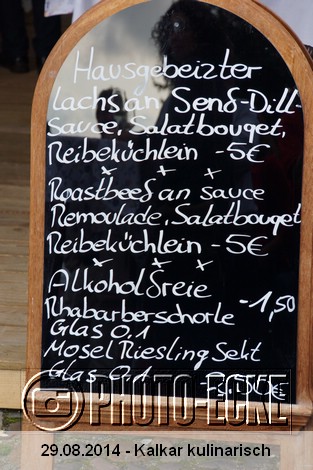 Hausgebeizter
Lachs an Senf-Dill-
Sauce, Salatbouqet,
Reibeküchlein -5€
x x x
Roastbeef an sauce
Remoulade, Salatbouqet
Reibeküchlein -5€
x x x
Alkoholfreie
Rhabarberschorle -1,50
Glas 0,1
Mosel Riesling Sekt
Glas 0,1
PHOTO-ECKE
29.08.2014 - Kalkar kulinarisch